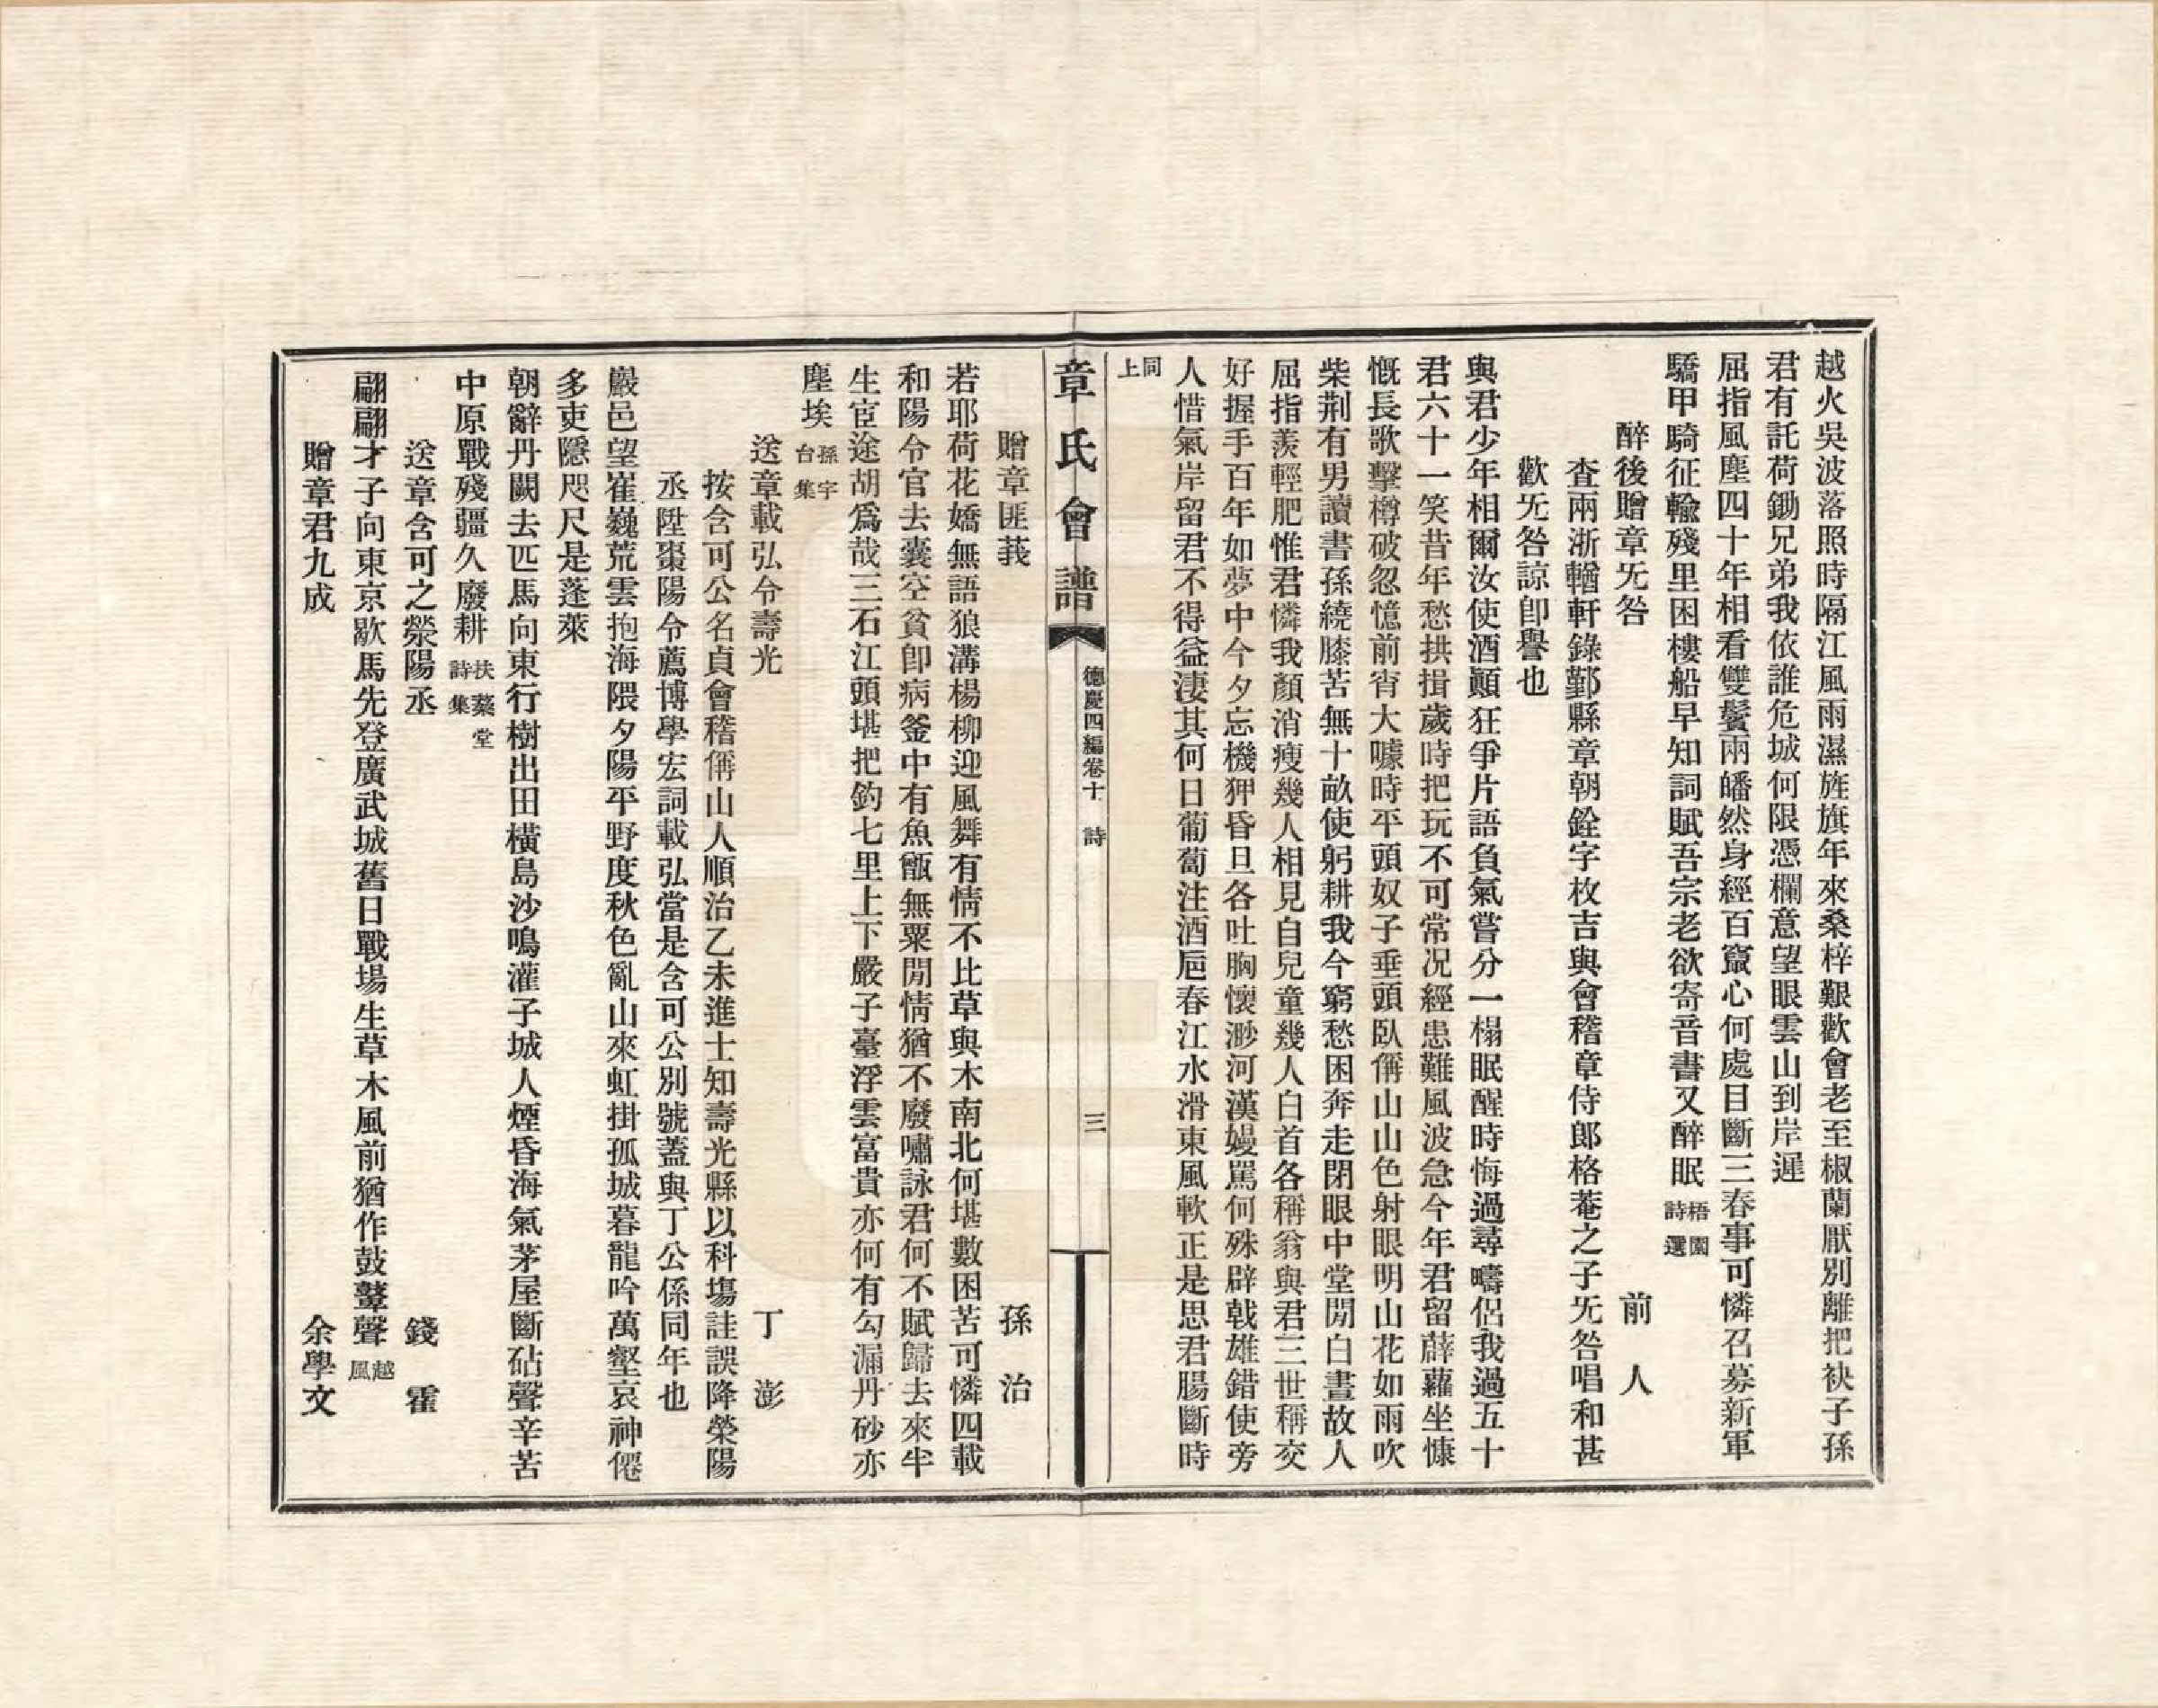 越火吳波落照時隔江風雨濕旌旗年來桑梓艱歡會老至椒蘭厭別離把袂子孫
君有託荷鋤兄弟我依誰危城何限憑欄意望眼雲山到岸遲
屈指風塵四十年相看雙鬢兩皤然身經百竄心何處目斷三春事可憐召募新軍
驕甲騎征輸殘里困樓船早知詞賦吾宗老欲寄音書又醉眠 梧園詩選
醉後贈章旡咎 前人
查兩浙輶軒錄鄞縣章朝銓字枚吉與會稽章侍郎格菴之子旡咎唱和甚
歡旡咎諒卽譽也
與君少年相爾汝使酒顚狂爭片語負氣嘗分一榻眠醒時悔過尋疇侶我過五十
君六十一笑昔年愁拱揖歲時把玩不可常况經患難風波急今年君留薜蘿坐慷
慨長歌擊樽破忽憶前宵大噱時平頭奴子垂頭臥偁山山色射眼明山花如雨吹
柴荆有男讀書孫繞膝苦無十畝使躬耕我今窮愁困奔走閉眼中堂閒白晝故人
屈指羨輕肥惟君憐我顏消瘦幾人相見自兒童幾人白首各稱翁與君三世稱交
好握手百年如夢中今夕忘機狎昏旦各吐胸懷渺河漢嫚駡何殊辟戟雄錯使旁
人惜氣岸留君不得益淒其何日葡萄注酒巵春江水滑東風軟正是思君腸斷時
同上
章氏會譜 德慶四編卷十 詩 三
贈章匪莪 孫治
若耶荷花嬌無語狼溝楊柳迎風舞有情不比草與木南北何堪數困苦可憐四載
和陽令官去囊空貧卽病釜中有魚甑無粟閒情猶不廢嘯詠君何不賦歸去來半
生宦途胡爲哉三石江頭堪把釣七里上下嚴子臺浮雲富貴亦何有勾漏丹砂亦
塵埃 孫宇台集
送章載弘令壽光 丁澎
按含可公名貞會稽偁山人順治乙未進士知壽光縣以科塲註誤降滎陽
丞陞棗陽令薦博學宏詞載弘當是含可公別號蓋與丁公係同年也
巖邑望崔巍荒雲抱海隈夕陽平野度秋色亂山來虹掛孤城暮龍吟萬壑哀神僊
多吏隱咫尺是蓬萊
朝辭丹闕去匹馬向東行樹出田橫島沙鳴灌子城人煙昏海氣茅屋斷砧聲辛苦
中原戰殘疆久廢耕 扶荔堂詩集
送章含可之滎陽丞 錢霍
翩翩才子向東京歇馬先登廣武城舊日戰場生草木風前猶作鼓鼙聲 越風
贈章君九成 余學文